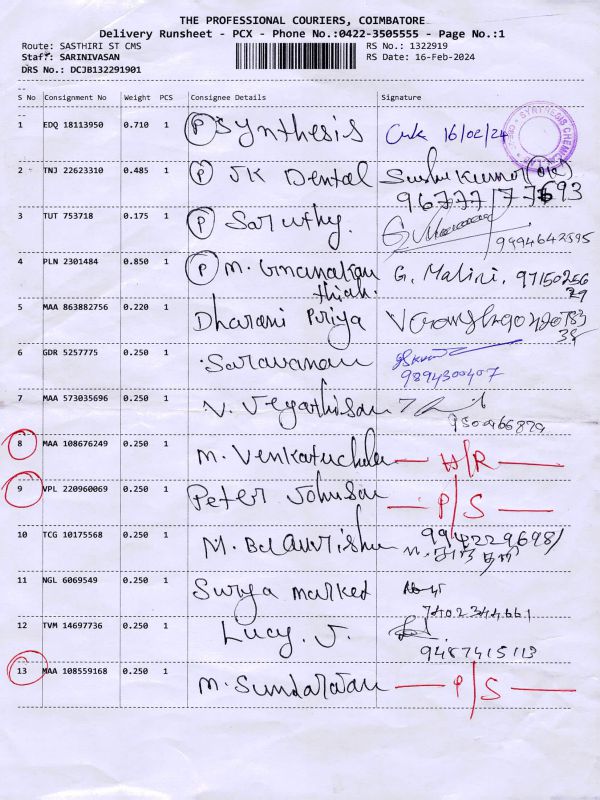 THE PROFESSIONAL COURIERS, COIMBATORE
Delivery Runsheet - PCX - Phone No.:0422-3505555 - Page No.:1
Route: SASTHIRI ST CMS RS No.: 1322919
Staff: SARINIVASAN RS Date: 16-Feb-2024
DRS No.: DCJB132291901
S No Consignment No Weight PCS Consignee Details Signature
1 EDQ 18113950 0.710 1 (P) Synthesis 16/02/24
SYNTHESIS CHEMICAL
2 TNJ 22623310 0.485 1 (P) JK Dental
3 TUT 753718 0.175 1 (P) Saruthy. 9994642595
4 PLN 2301484 0.850 1 (P) M. Gnanakan G. Malini. 97150256
thiah. 29
5 MAA 863882756 0.220 1 Dharani Priya
6 GDR 5257775 0.250 1 Saravanan
9894300407
7 MAA 573035696 0.250 1 V. Jegathisan
8 MAA 108676249 0.250 1 M. Venkatuchala
9 VPL 220960069 0.250 1 Peter Johnson P/S
10 TCG 10175568 0.250 1 9942229698/
11 NGL 6069549 0.250 1 Surya market
7402344661
12 TVM 14697736 0.250 1 Lucy. J.
9487415113
13 MAA 108559168 0.250 1 P/S